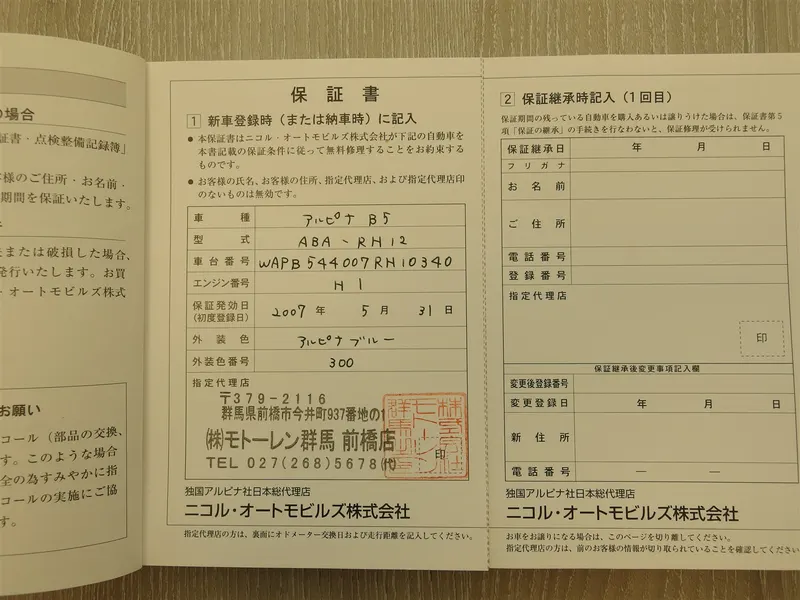 の場合
証書・点検整備記録簿」
様のご住所・お名前・
期間を保証いたします。
または破損した場合、
発行いたします。お買
・オートモビルズ株式
お願い
コール（部品の交換、
す。このような場合
全の為すみやかに指
コールの実施にご協
す。
保証書
1 新車登録時（または納車時）に記入
●本保証書はニコル・オートモビルズ株式会社が下記の自動車を
本書記載の保証条件に従って無料修理することをお約束する
ものです。
●お客様の氏名、お客様の住所、指定代理店、および指定代理店印
のないものは無効です。
車種 アルピナ B5
型式 ABA-RH12
車台番号 WAPB544007RH10340
エンジン番号 H1
保証発効日 2007年 5月 31日
(初度登録日)
外装色 アルピナブルー
外装色番号 300
指定代理店
〒379-2116
群馬県前橋市今井町937番地の1
㈱モトーレン群馬 前橋店
TEL 027(268)5678(代)
印
独国アルピナ社日本総代理店
ニコル・オートモビルズ株式会社
指定代理店の方は、裏面にオドメーター交換日および走行距離を記入してください。
2 保証継承時記入（1回目）
保証期間の残っている自動車を購入あるいは譲りうけた場合は、保証書第5
項「保証の継承」の手続きを行なわないと、保証修理が受けられません。
保証継承日 年 月 日
フリガナ
お名前
ご住所
電話番号
登録番号
指定代理店
印
保証継承後変更事項記入欄
変更後登録番号
変更登録日 年 月 日
新住所
電話番号 ― ―
独国アルピナ社日本総代理店
ニコル・オートモビルズ株式会社
お車をお譲りになる場合は、このページを切り離してください。
指定代理店の方は、前のお客様の情報が切り取られていることを確認してください